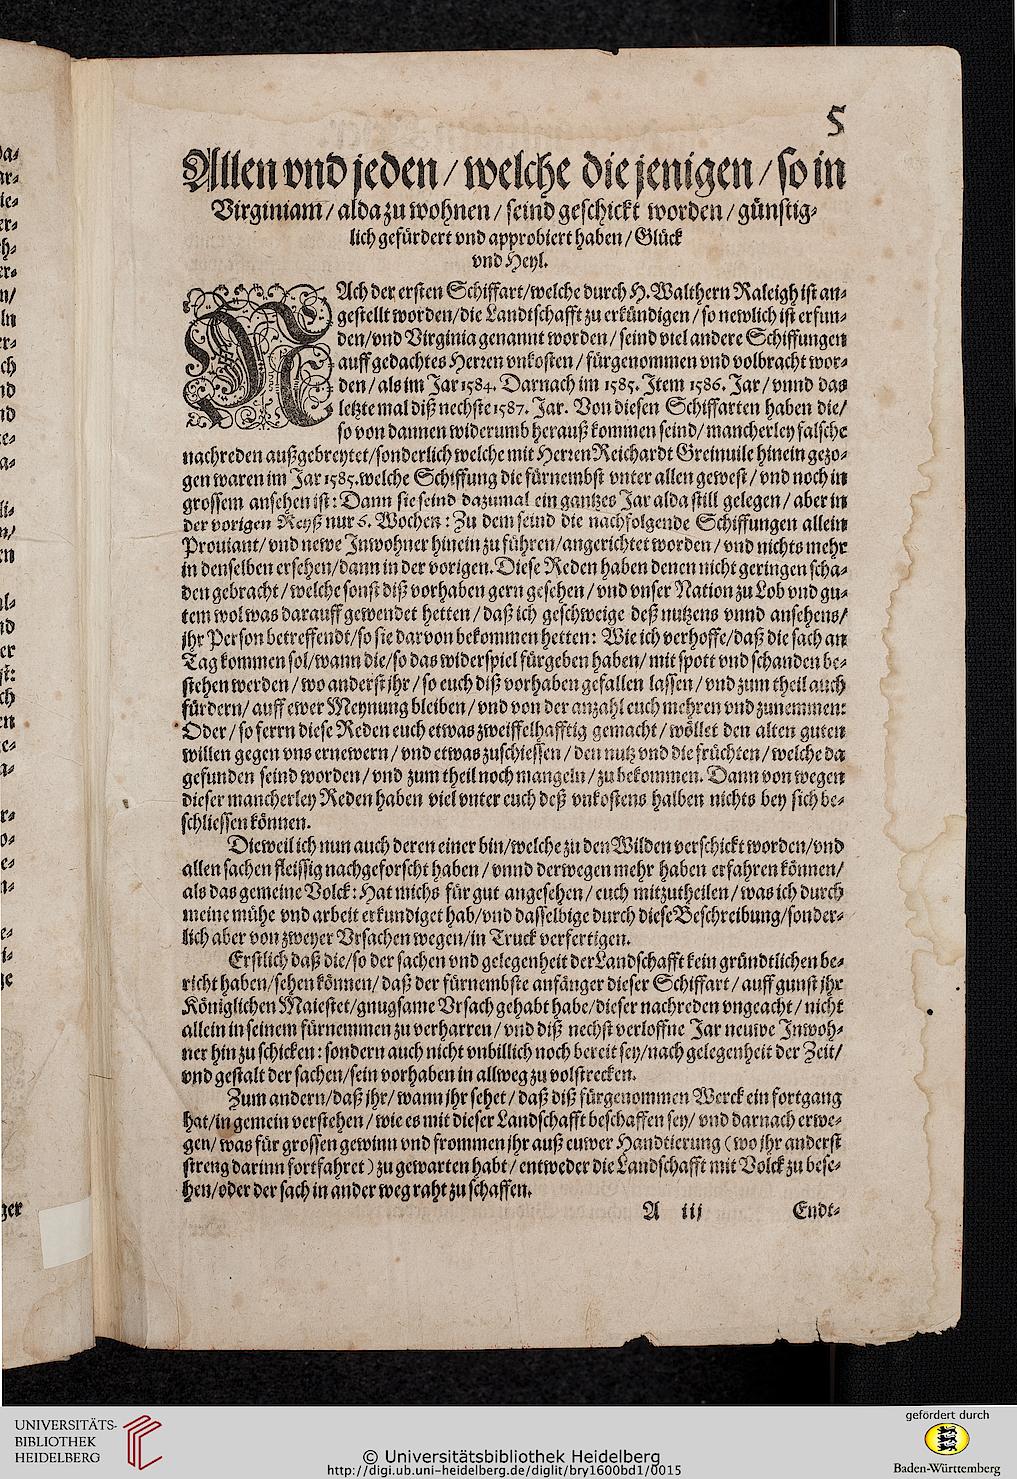 5
Allen vnd jeden / welche die jenigen / so in
Virginiam / alda zu wohnen / seind geschickt worden / günstig-
lich gefürdert vnd approbiert haben / Glück
vnd Heyl.
NAch der ersten Schiffart/welche durch H. Walthern Raleigh ist an-
gestellt worden/die Landtschafft zu erkündigen / so newlich ist erfun-
den/vnd Virginia genannt worden / seind viel andere Schiffungen
auff gedachtes Herren vnkosten / fürgenommen vnd volbracht wor-
den / als im Jar 1584. Darnach im 1585. Item 1586. Jar / vnnd das
letzte mal diß nechste 1587. Jar. Von diesen Schiffarten haben die/
so von dannen widerumb herauß kommen seind/ mancherley falsche
nachreden außgebreytet/sonderlich welche mit Herren Reichardt Greinuile hinein gezo-
gen waren im Jar 1585. welche Schiffung die fürnembst vnter allen gewest / vnd noch in
grossem ansehen ist : Dann sie seind dazumal ein gantzes Jar alda still gelegen / aber in
der vorigen Reyß nur 6. Wochen : Zu dem seind die nachfolgende Schiffungen allein
Prouiant/ vnd newe Inwohner hinein zu führen/angerichtet worden / vnd nichts mehr
in denselben ersehen/dann in der vorigen. Diese Reden haben denen nicht geringen scha-
den gebracht / welche sonst diß vorhaben gern gesehen / vnd vnser Nation zu Lob vnd gu-
tem wol was darauff gewendet hetten / daß ich geschweige deß nutzens vnnd ansehens/
jhr Person betreffendt/so sie darvon bekommen hetten: Wie ich verhoffe/daß die sach an
Tag kommen sol/wann die/so das widerspiel fürgeben haben/ mit spott vnd schanden be-
stehen werden / wo anderst jhr / so euch diß vorhaben gefallen lassen / vnd zum theil auch
fürdern/ auff ewer Meynung bleiben / vnd von der anzahl euch mehren vnd zunemmen:
Oder / so ferrn diese Reden euch etwas zweiffelhafftig gemacht / wöllet den alten guten
willen gegen vns ernewern / vnd etwas zuschiessen / den nutz vnd die früchten / welche da
gefunden seind worden / vnd zum theil noch mangeln / zu bekommen. Dann von wegen
dieser mancherley Reden haben viel vnter euch deß vnkostens halben nichts bey sich be-
schliessen können.
Dieweil ich nun auch deren einer bin/welche zu den Wilden verschickt worden/vnd
allen sachen fleissig nachgeforscht haben / vnnd derwegen mehr haben erfahren können/
als das gemeine Volck : Hat michs für gut angesehen / euch mitzutheilen / was ich durch
meine mühe vnd arbeit erkundiget hab/vnd dasselbige durch diese Beschreibung/sonder-
lich aber von zweyer Vrsachen wegen/in Truck verfertigen.
Erstlich daß die/so der sachen vnd gelegenheit der Landschafft kein gründtlichen be-
richt haben/sehen können/ daß der fürnembste anfänger dieser Schiffart / auff gunst jhr
Königlichen Maiestet/gnugsame Vrsach gehabt habe/dieser nachreden vngeacht / nicht
allein in seinem fürnemmen zu verharren / vnd diß nechst verloffne Jar neuwe Inwoh-
ner hin zu schicken : sondern auch nicht vnbillich noch bereit sey/nach gelegenheit der Zeit/
vnd gestalt der sachen/sein vorhaben in allweg zu volstrecken.
Zum andern/daß jhr/ wann jhr sehet / daß diß fürgenommen Werck ein fortgang
hat/in gemein verstehen / wie es mit dieser Landschafft beschaffen sey/ vnd darnach erwe-
gen/ was für grossen gewinn vnd frommen jhr auß euwer Handtierung ( wo jhr anderst
streng darinn fortfahret ) zu gewarten habt / entweder die Landschafft mit Volck zu bese-
hen/oder der sach in ander weg raht zu schaffen.
A iij Endt-
UNIVERSITÄTS-
BIBLIOTHEK
HEIDELBERG
© Universitätsbibliothek Heidelberg
http://digi.ub.uni-heidelberg.de/diglit/bry1600bd1/0015
gefördert durch
Baden-Württemberg